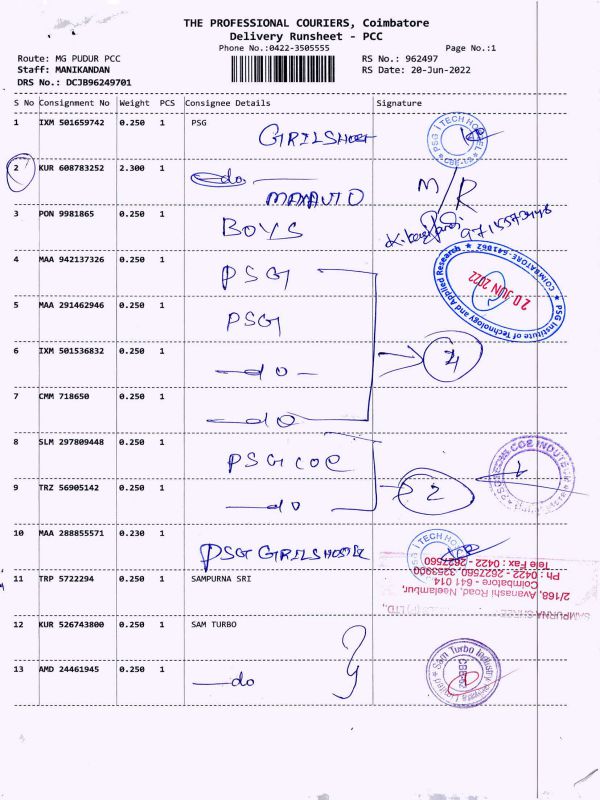 THE PROFESSIONAL COURIERS, Coimbatore
Delivery Runsheet - PCC
Phone No.:0422-3505555
Page No.:1
Route: MG PUDUR PCC
RS No.: 962497
Staff: MANIKANDAN
RS Date: 20-Jun-2022
DRS No.: DCJB96249701
S No Consignment No Weight PCS Consignee Details Signature
1 IXM 501659742 0.250 1 PSG
GIRILSHOST
PSG iTECH HOSTEL
CBE-62
2 KUR 608783252 2.300 1
do
MAXAUTO
M/R
3 PON 9981865 0.250 1
BOYS
4 MAA 942137326 0.250 1
PSG
PSG Institute of Technology and Applied Research
COIMBATORE-641062
20 JUN 2022
5 MAA 291462946 0.250 1
PSG
6 IXM 501536832 0.250 1
do
4
7 CMM 718650 0.250 1
do
8 SLM 297809448 0.250 1
PSG COE
9 TRZ 56905142 0.250 1
do
2
10 MAA 288855571 0.230 1
PSG GIRILSHOSTE
PSG iTECH HOSTEL
11 TRP 5722294 0.250 1 SAMPURNA SRI
2/169, Avanashi Road, Neelambur,
Coimbatore - 641 014
Ph : 0422 - 2627560, 3253900
Tele Fax : 0422 - 2627560
12 KUR 526743800 0.250 1 SAM TURBO
13 AMD 24461945 0.250 1
do
Sam Turbo Industry Private Limited
CBE-62